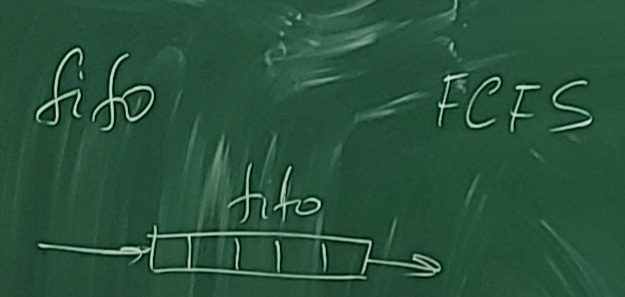 fifo FCFS
fifo